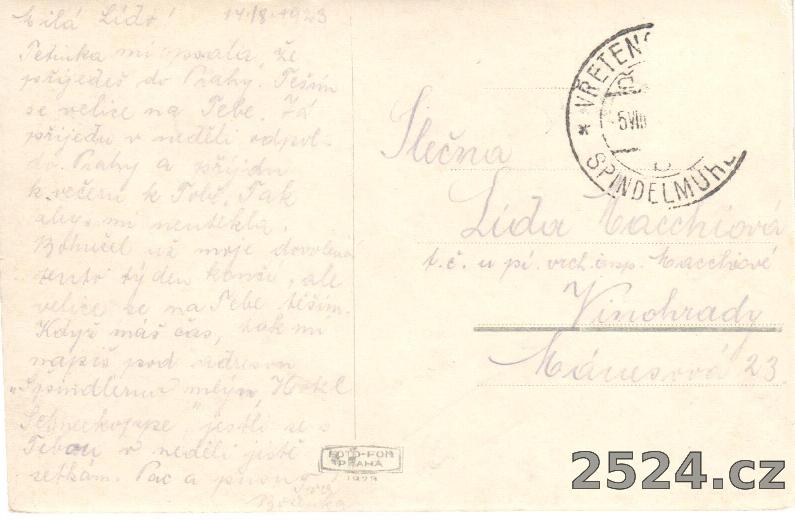 Milá Lído! 14/8.1923
Petinka mi psala, že
přijedeš do Prahy. Těším
se velice na Tebe. Já
přijedu v neděli odpol-
do Prahy a přijdu
k večeru k Tobě. Tak
aby mi neutekla.
Bohužel už moje dovolená
tento týden končí, ale
velice se na Tebe těším.
Když máš čas, tak mi
napiš pod adresou
"Špindlerův mlýn, Hotel
Schneekoppe" jestli se s
Tebou v neděli jistě
setkám. Pac a pusu
Tvá
Boženka
VŘETEN
SPINDELMÜH
Slečna
Lída Macchiová
t.č. u pí. vrch. insp. Macchiové
Vinohrady
Mánesová 23
FOTO-FON
PRAHA
1923
2524.cz